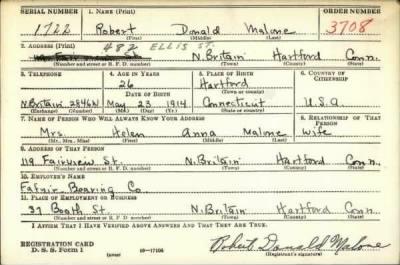 SERIAL NUMBER 1. NAME (Print) ORDER NUMBER
1722 Robert Donald Malone 3708
(First) (Middle) (Last)
2. ADDRESS (Print) 482 ELLIS ST.
N. Britain Hartford Conn.
(Number and street or R. F. D. number) (Town) (County) (State)
3. TELEPHONE 4. AGE IN YEARS 5. PLACE OF BIRTH 6. COUNTRY OF CITIZENSHIP
26 Hartford
DATE OF BIRTH (Town or county)
N. Britain 2846W May 23 1914 Connecticut U.S.A.
(Exchange) (Number) (Mo.) (Day) (Yr.) (State or country)
7. NAME OF PERSON WHO WILL ALWAYS KNOW YOUR ADDRESS 8. RELATIONSHIP OF THAT PERSON
Mrs. Helen Anna Malone Wife
(Mr., Mrs., Miss) (First) (Middle) (Last)
9. ADDRESS OF THAT PERSON
119 Fairview St. N. Britain Hartford Conn.
(Number and street or R. F. D. number) (Town) (County) (State)
10. EMPLOYER'S NAME
Fafnir Bearing Co.
11. PLACE OF EMPLOYMENT OR BUSINESS
37 Booth St. N. Britain Hartford Conn.
(Number and street or R. F. D. number) (Town) (County) (State)
I AFFIRM THAT I HAVE VERIFIED ABOVE ANSWERS AND THAT THEY ARE TRUE.
REGISTRATION CARD
D. S. S. Form 1 (over) 16—17105 Robert Donald Malone
(Registrant's signature)